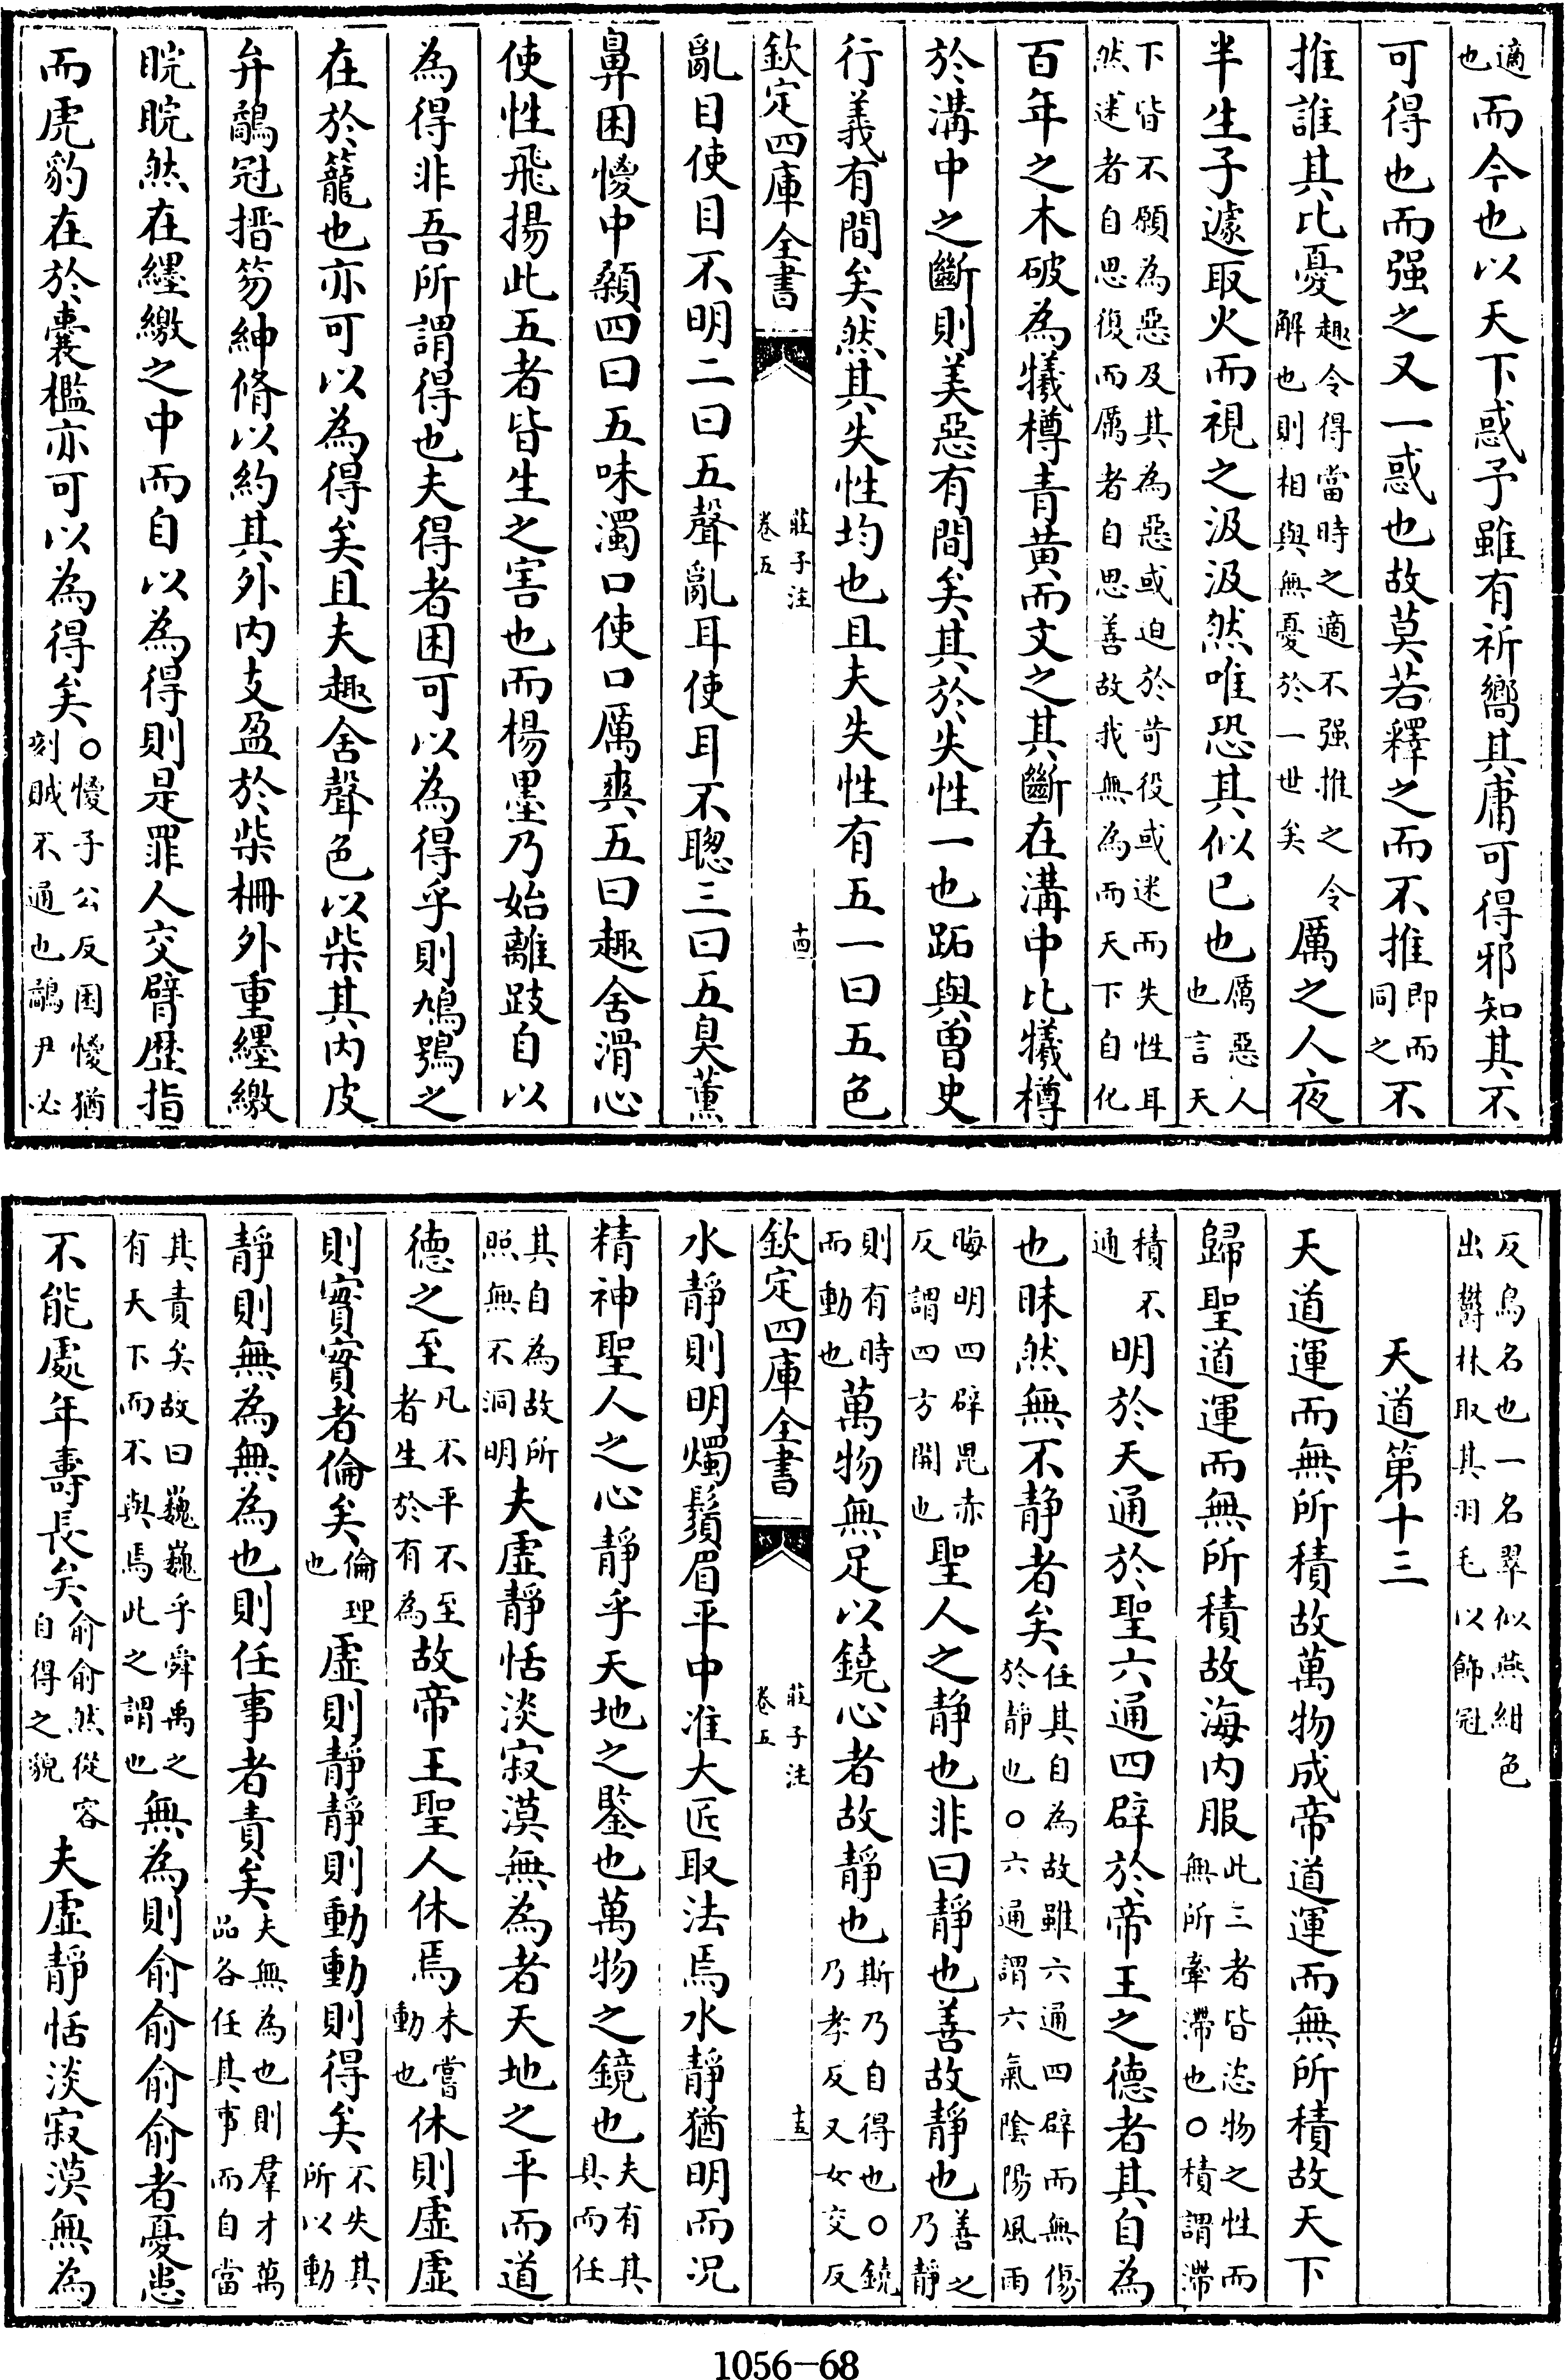 適也而今也以天下惑予雖有祈嚮其庸可得邪知其不
可得也而强之又一惑也故莫若釋之而不推即而同之不
推誰其比憂趣令得當時之適不强推之令解也則相與無憂於一世矣厲之人夜
半生子遽取火而視之汲汲然唯恐其似已也厲惡人也言天
下皆不願為惡及其為惡或迫於苛役或迷而失性耳然迷者自思復而厲者自思善故我無為而天下自化
百年之木破為犧樽青黄而文之其斷在溝中比犧樽
於溝中之斷則美惡有間矣其於失性一也跖與曽史
行義有間矣然其失性均也且夫失性有五一曰五色
欽定四庫全書
莊子注
卷五
十四
亂目使目不明二曰五聲亂耳使耳不聰三曰五臭薰
鼻困惾中顙四曰五味濁口使口厲爽五曰趣舍滑心
使性飛揚此五者皆生之害也而楊墨乃始離跂自以
為得非吾所謂得也夫得者困可以為得乎則鳩鴞之
在於籠也亦可以為得矣且夫趣舍聲色以柴其内皮
弁鷸冠搢笏紳脩以約其外内支盈於柴柵外重纆繳
睆睆然在纆繳之中而自以為得則是罪人交臂歴指
而虎豹在於囊檻亦可以為得矣○惾子公反困惾猶刻賊不通也鷸尹必
反鳥名也一名翠似燕紺色出鬱林取其羽毛以飾冠
天道第十三
天道運而無所積故萬物成帝道運而無所積故天下
歸聖道運而無所積故海内服此三者皆恣物之性而無所牽滯也○積謂滯
積不通明於天通於聖六通四辟於帝王之德者其自為
也昧然無不静者矣任其自為故雖六通四辟而無傷於靜也○六通謂六氣陰陽風雨
晦明四辟毘赤反謂四方開也聖人之静也非曰靜也善故靜也善之乃靜
則有時而動也萬物無足以鐃心者故靜也斯乃自得也○鐃乃孝反又女交反
欽定四庫全書
莊子注
卷五
十五
水靜則明燭鬚眉平中准大匠取法焉水靜猶明而况
精神聖人之心靜乎天地之鑒也萬物之鏡也夫有其具而任
其自為故所照無不洞明夫虛靜恬淡寂漠無為者天地之平而道
德之至凡不平不至者生於有為故帝王聖人休焉未嘗動也休則虛虛
則實實者倫矣倫理也虛則靜靜則動動則得矣不失其所以動
靜則無為無為也則任事者責矣夫無為也則羣才萬品各任其事而自當
其責矣故曰巍巍乎舜禹之有天下而不與焉此之謂也無為則俞俞俞俞者憂患
不能處年夀長矣俞俞然從容自得之貌夫虛靜恬淡寂漠無為
1056-68